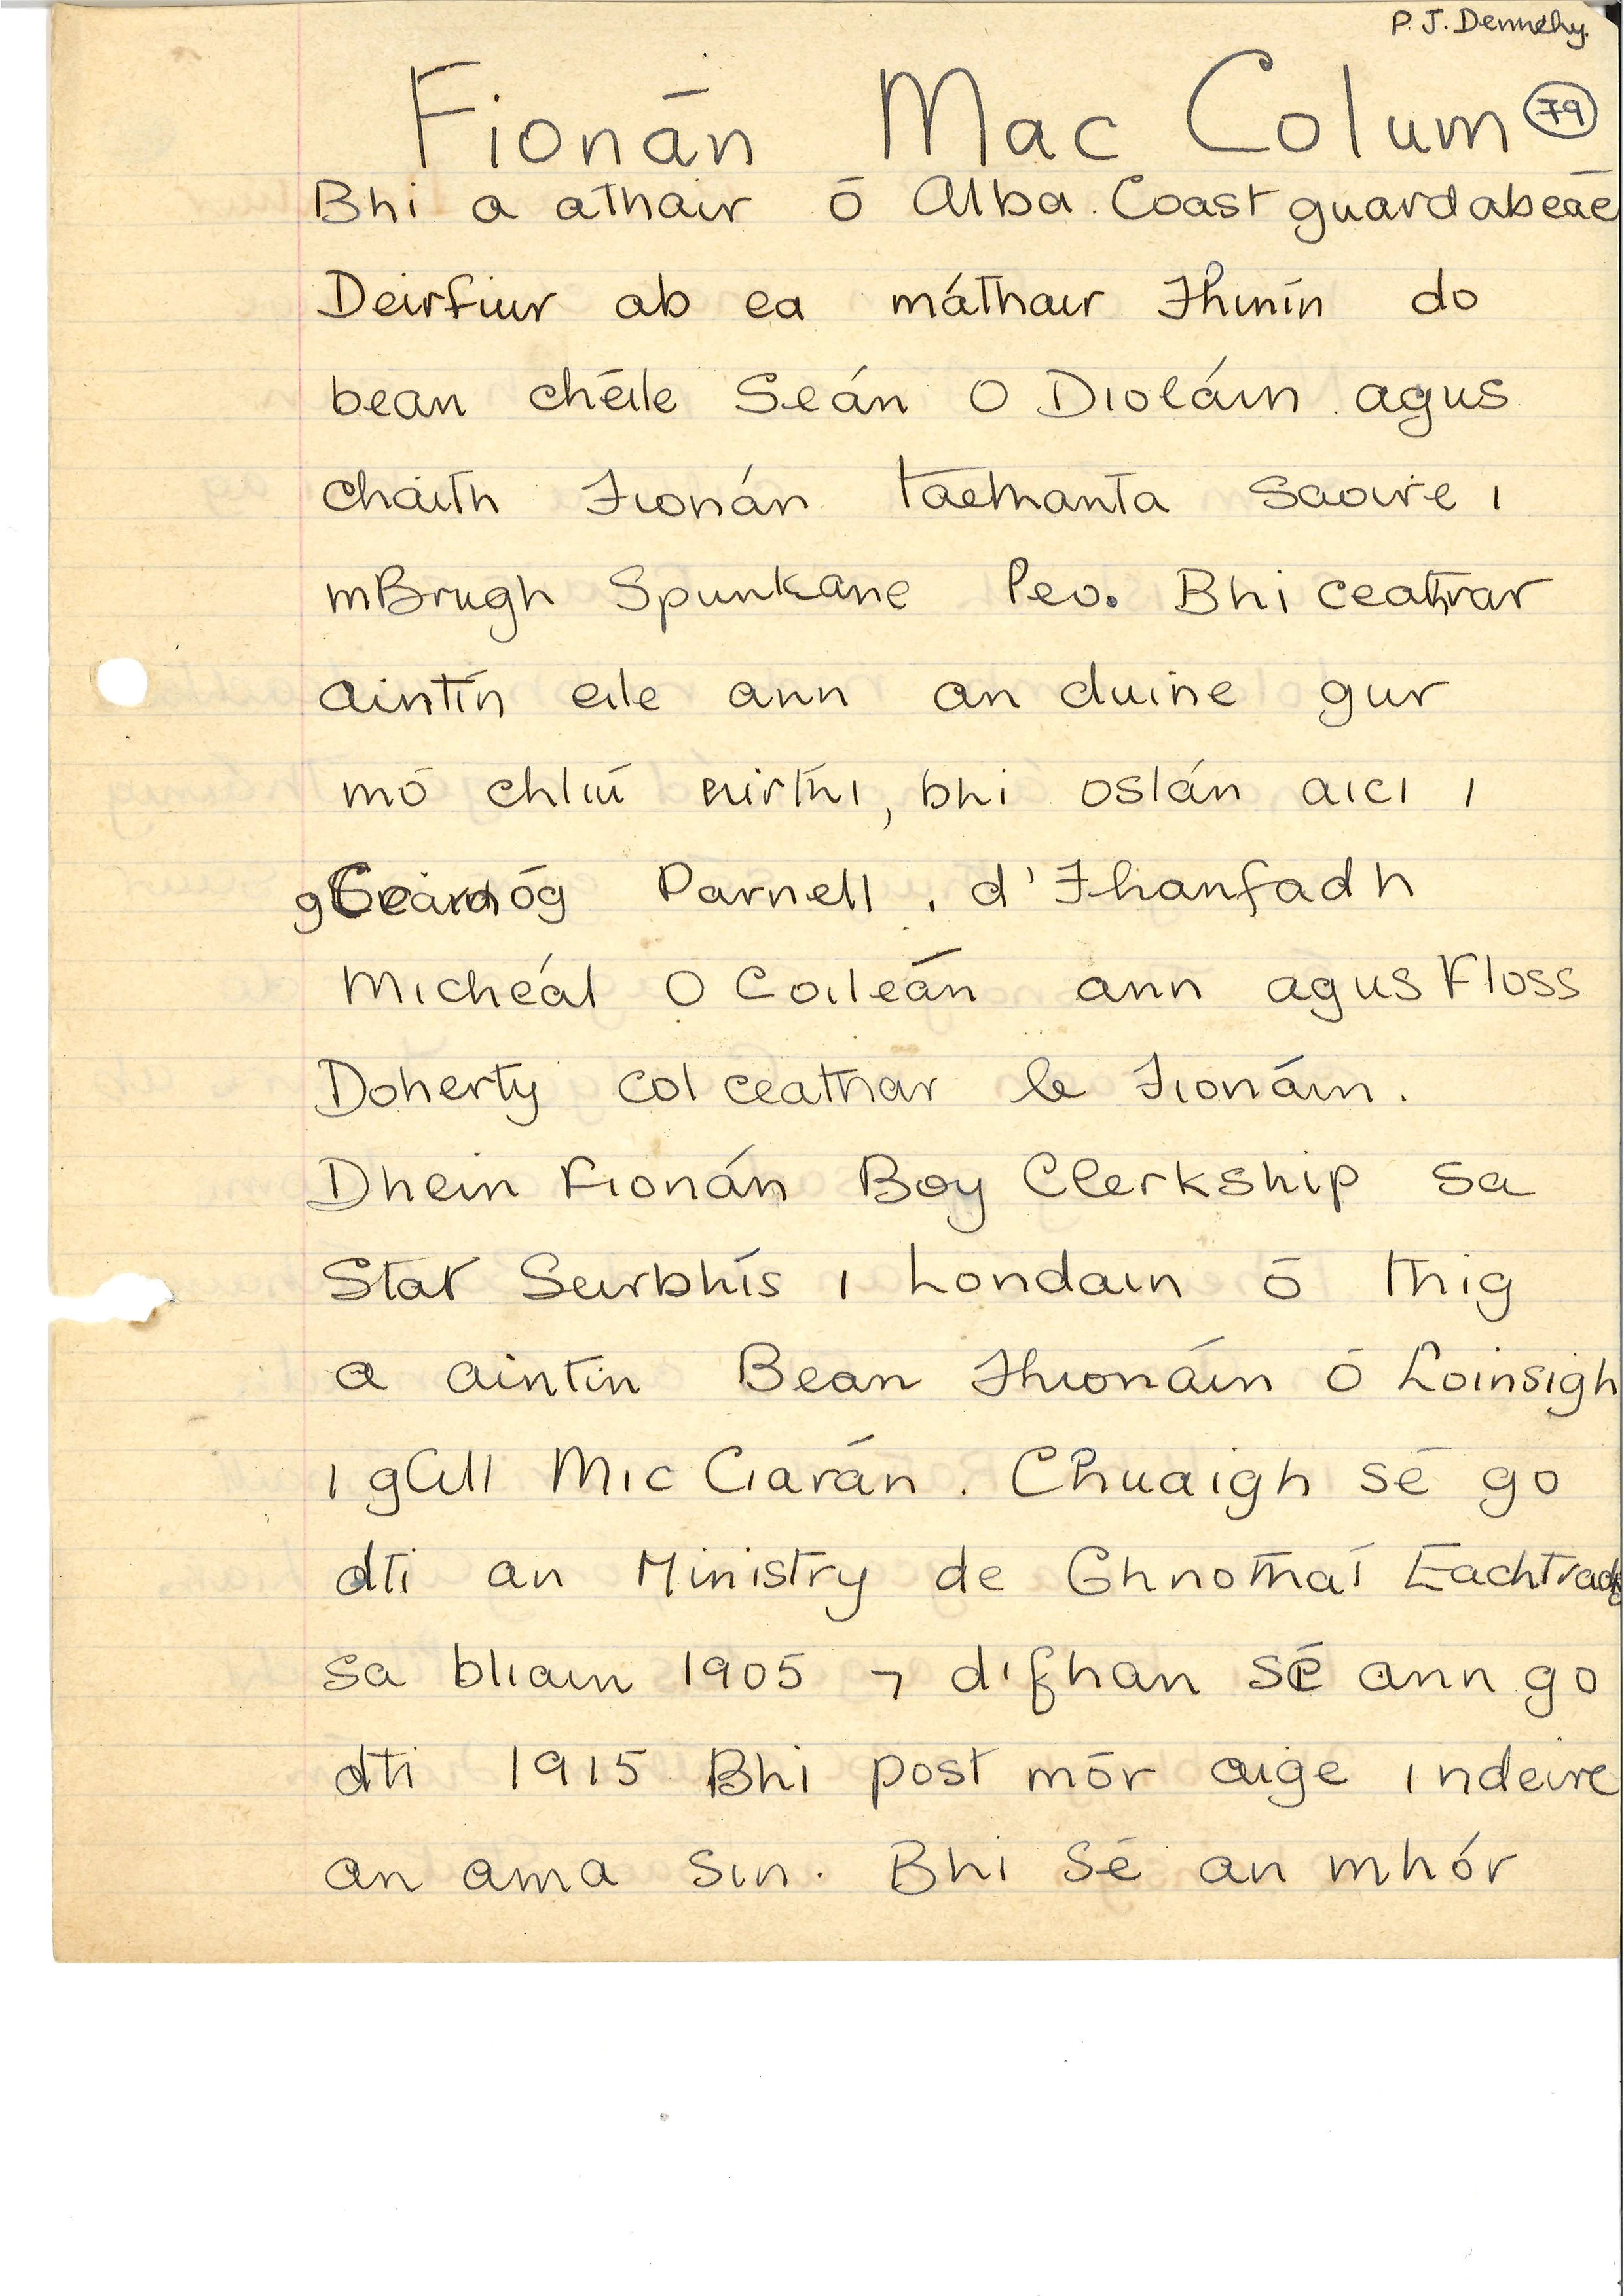 P.J. Dennehy.
Fionán Mac Colum 79
Bhi a athair ó Alba. Coast guard ab eá é
Deirfiur ab ea máthair Fhinín do
bean chéile Seán O Dioláin agus
chaith Fionán taethanta saoire i
mBrugh Spunkane leo. Bhi ceathrar
aintín eile ann an duine gur
mó chliú uirthi, bhi oslán aici i
Parnell. d'Fhanfadh
Micheál O Coileán ann agus Floss
Doherty col ceathar le Fionáin.
Dhein Fionán Boy Clerkship sa
Stat Seirbhís i Londain ó thig
a aintin Bean Fhionáin ó Loinsigh
i gCill Mic Ciarán. Chuaigh sé go
dti an Ministry de Ghnothaí
sa bliain 1905 ⁊ d'fhan sé ann go
dti 1915 Bhi post mór aige indeire
an ama sin. Bhi sé an mhór